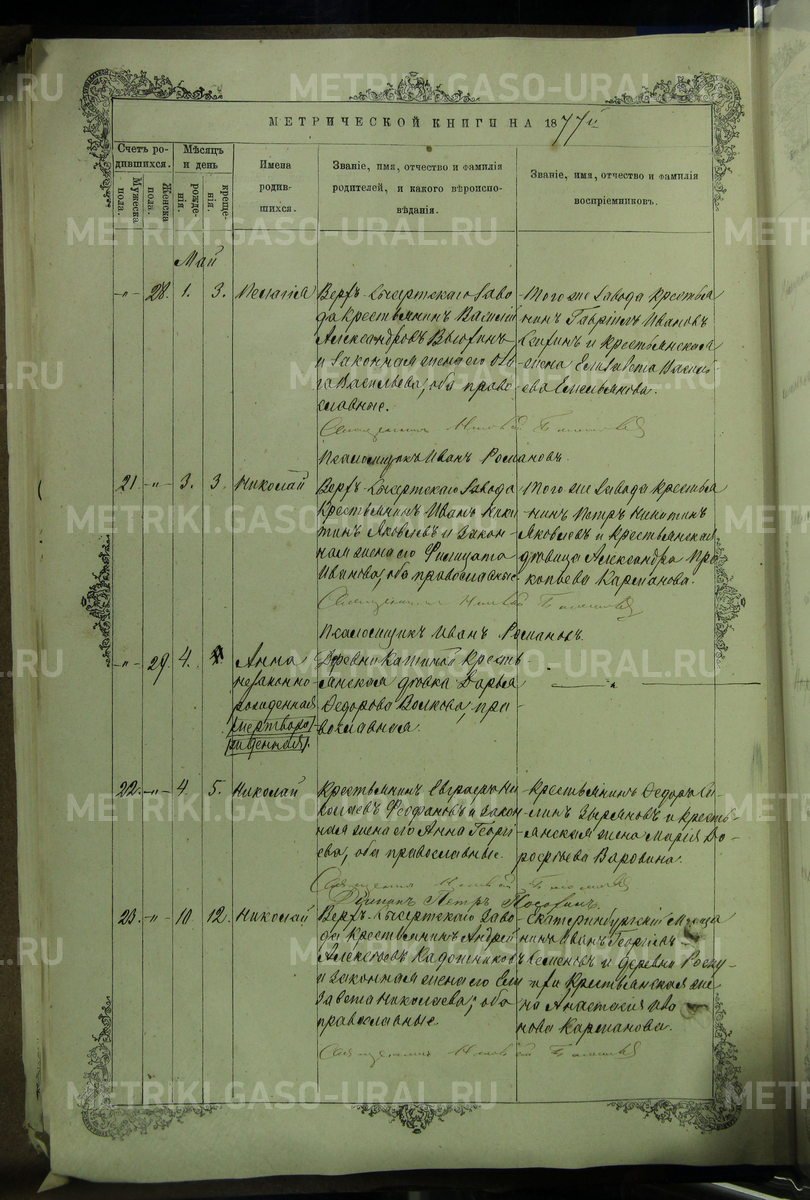 МЕТРИЧЕСКОЙ КНИГИ НА 1877й
Счетъ ро-
дившихся.
Мужеска
пола.
Женска
пола.
Мѣсяцъ
и день
рожде-
нія.
креще-
нія.
Имена
родив-
шихся.
Званіе, имя, отчество и фамилія
родителей, и какого вѣроиспо-
вѣданія.
Званіе, имя, отчество и фамилія
воспріемниковъ.
Май
-"- 28. 1. 3. Пелагія
Верхъ-Сысертскаго Заво-
да крестьянинъ Василій
Александровъ Вьюхинъ
и законная жена его Оль-
га Васильева, оба право-
славные.
Того же Завода крестья
нинъ Гавріилъ Ивановъ
и крестьянская
жена Елизавета Василь-
ева Емельянова.
Священникъ
Псаломщикъ Иванъ Романовъ.
21 -"- 3. 3. Николай
Верхъ-Сысертскаго Завода
Крестьянинъ Иванъ Ники
тинъ Яковлевъ и закон-
ная жена его Филицата
Иванова, оба православные
Того же Завода крестья
нинъ Петръ Никитинъ
Яковлевъ и крестьянская
дѣвица Александра Про
копьева Карманова.
Священникъ
Псаломщикъ Иванъ Романовъ.
-"- 29. 4.
Анна
незаконно-
рожденная
(мертворо-
жденная).
Деревни Кашиной Кресть-
янская дѣвка Дарья
Федорова Волкова, пра-
вославная.
22. -"- 4. 5. Николай
Крестьянинъ Евграфъ Ни
колаевъ Феофановъ и закон
ная жена его Анна Георгі-
ева, оба православные.
Крестьянинъ Федоръ Си-
линъ Зыряновъ и кресть-
янская жена Марія До-
рофеева Варовина.
Священникъ
Петръ
23. -"- 10 12. Николай
Верхъ-Сысертскаго Заво-
да крестьянинъ Андрей
Алексѣевъ Кадочниковъ
и законная жена его Ели
завета Николаева; оба
православные.
Екатеринбургскій Мѣща
нинъ Иванъ Георгіевъ
Семеновъ и деревни
крестьянская же
на Анастасія Ива
нова Карманова.
Священникъ
METRIKI.GASO-URAL.RU